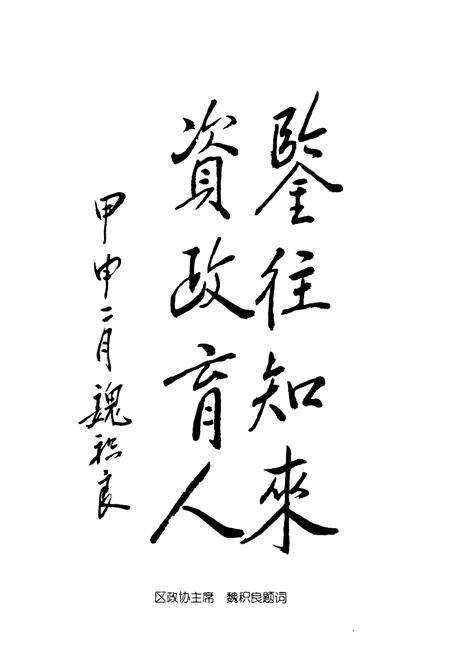 鑒往知來
資政育人
甲申二月魏积良
区政协主席　魏积良题词